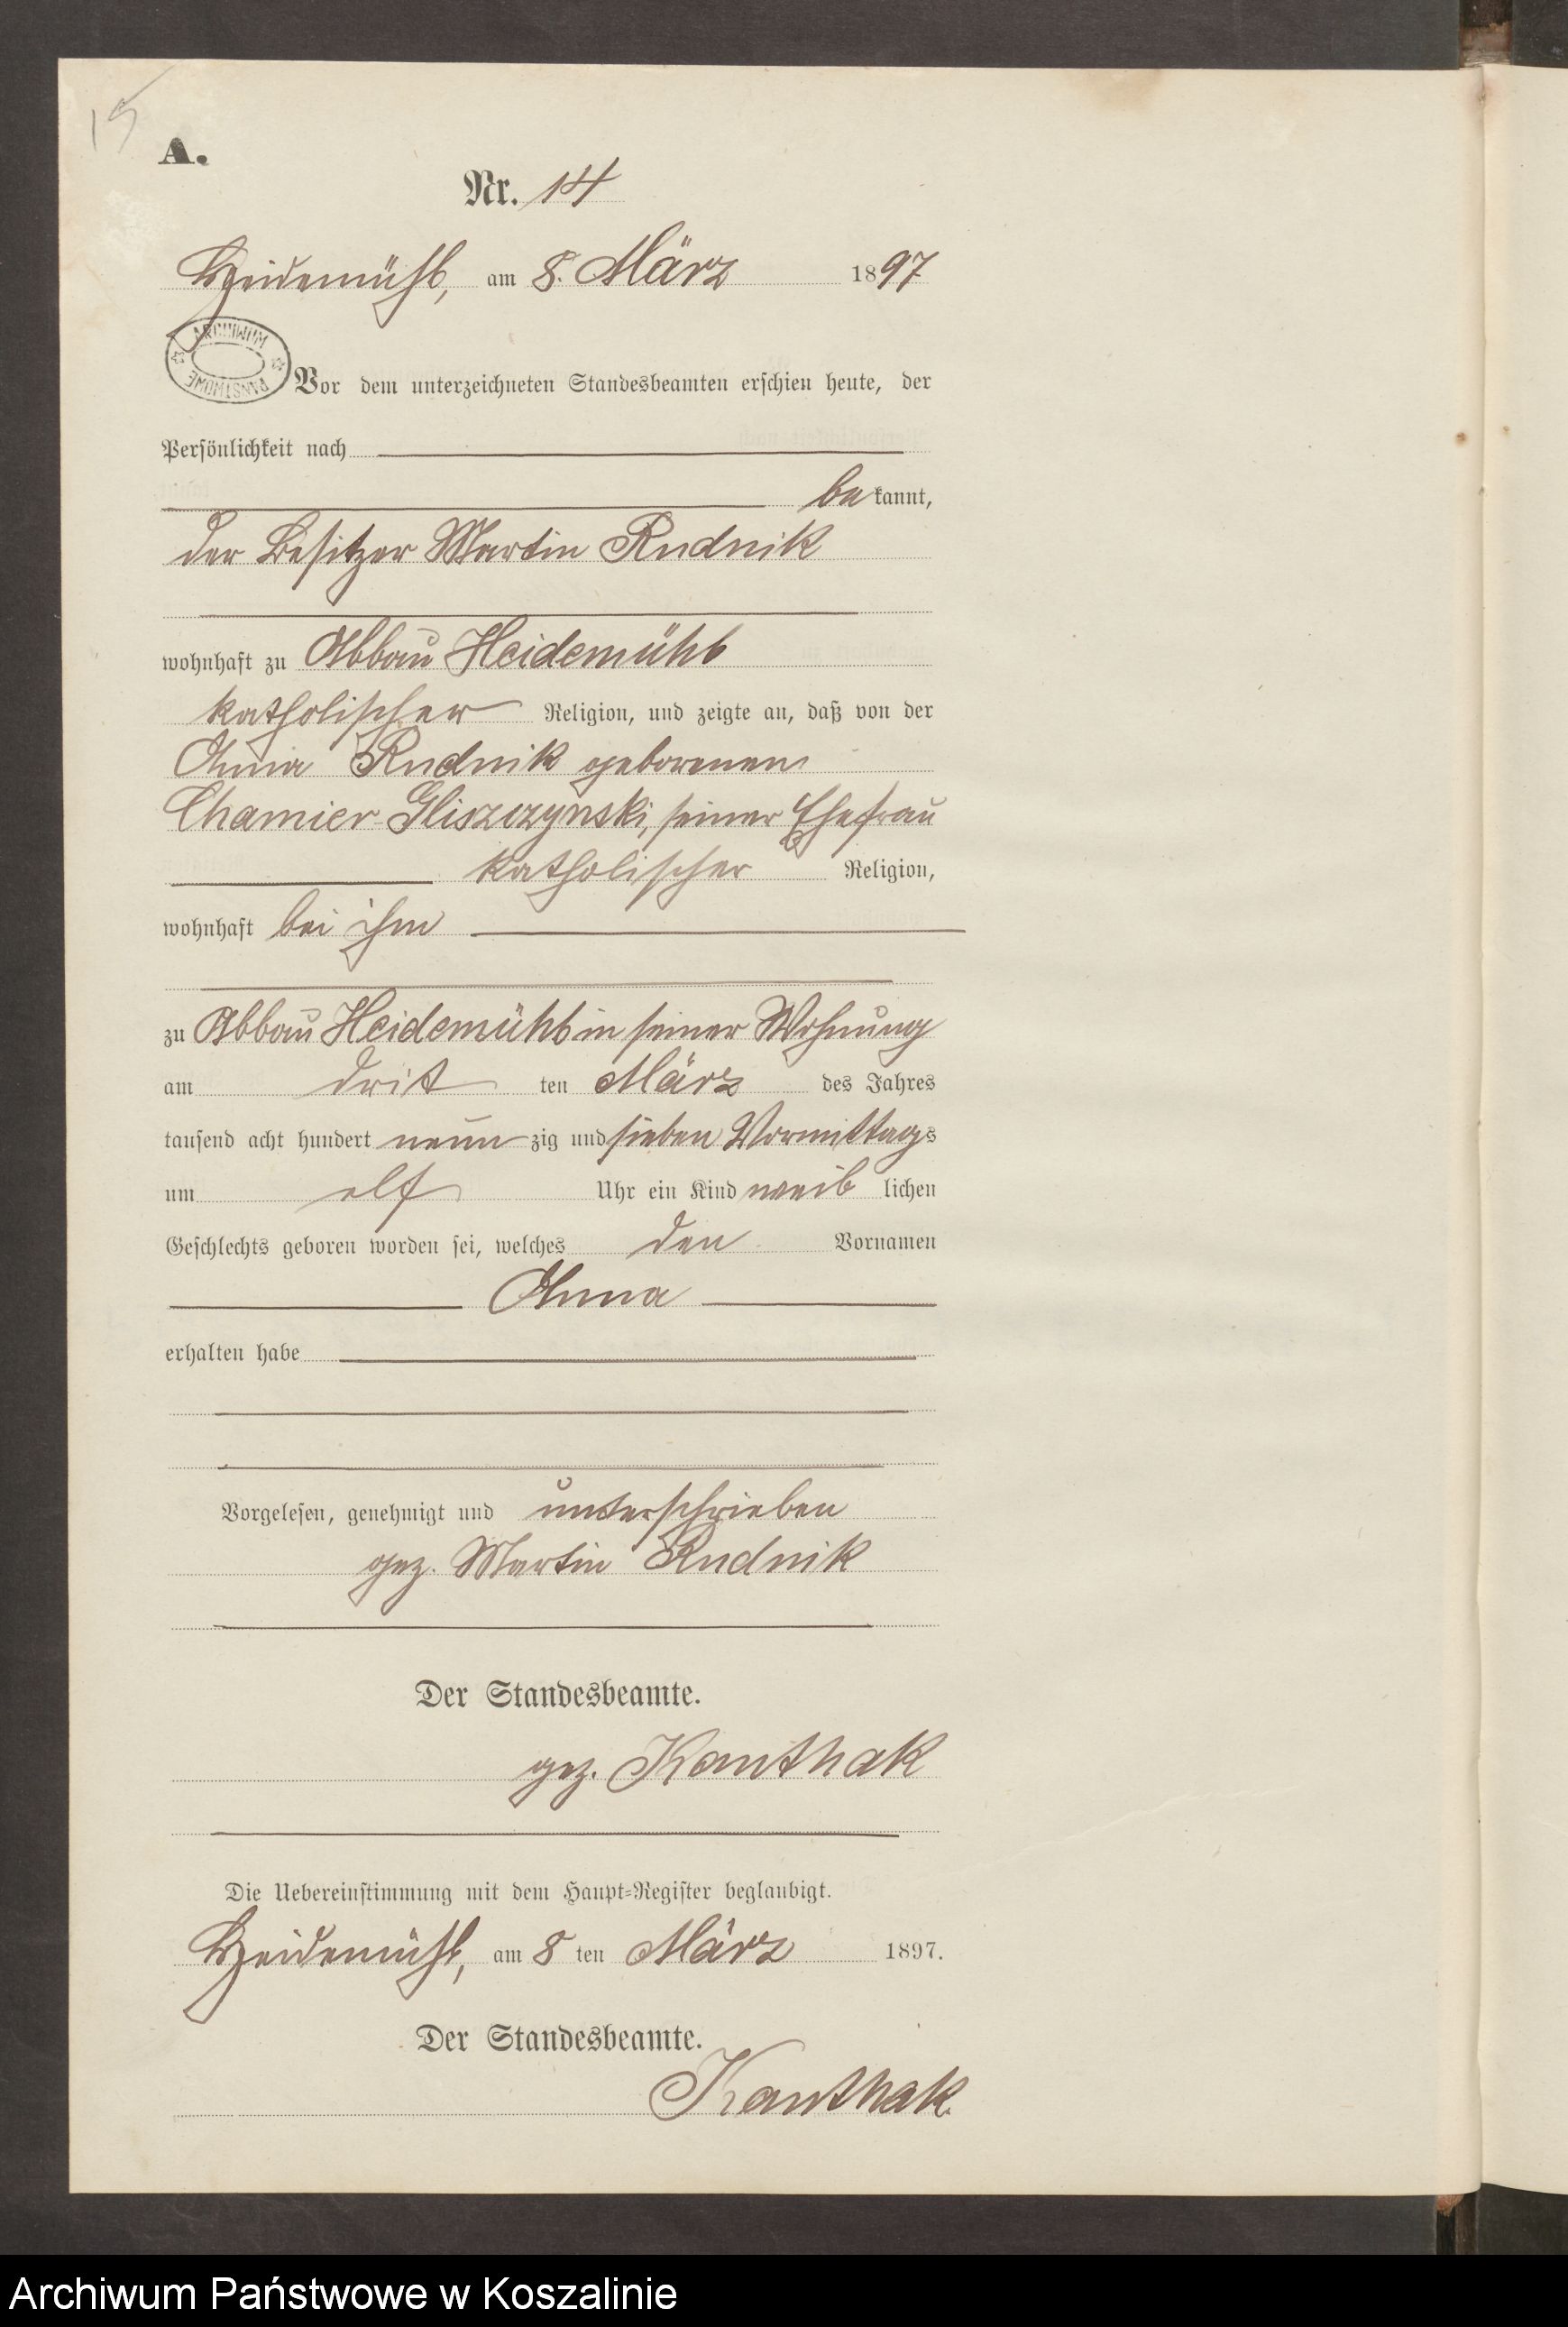 15
A.
Nr. 14
Heidemühl, am 8. März 1897
ARCHIWUM PAŃSTWOWE
Vor dem unterzeichneten Standesbeamten erschien heute, der
Persönlichkeit nach
be kannt,
der Besitzer Martin Rudnik
wohnhaft zu Abbau Heidemühl
katholischer Religion, und zeigte an, daß von der
Anna Rudnik geborenen
Chamier-Gliszczynski, seiner Ehefrau
katholischer Religion,
wohnhaft bei ihm
zu Abbau Heidemühl in seiner Wohnung
am drit ten März des Jahres
tausend acht hundert neun zig und sieben Vormittags
um elf Uhr ein Kind weib lichen
Geschlechts geboren worden sei, welches den Vornamen
Anna
erhalten habe
Vorgelesen, genehmigt und unterschrieben
gez. Martin Rudnik
Der Standesbeamte.
gez. Kanthak
Die Uebereinstimmung mit dem Haupt-Register beglaubigt.
Heidemühl, am 8 ten März 1897.
Der Standesbeamte.
Kanthak.
Archiwum Państwowe w Koszalinie